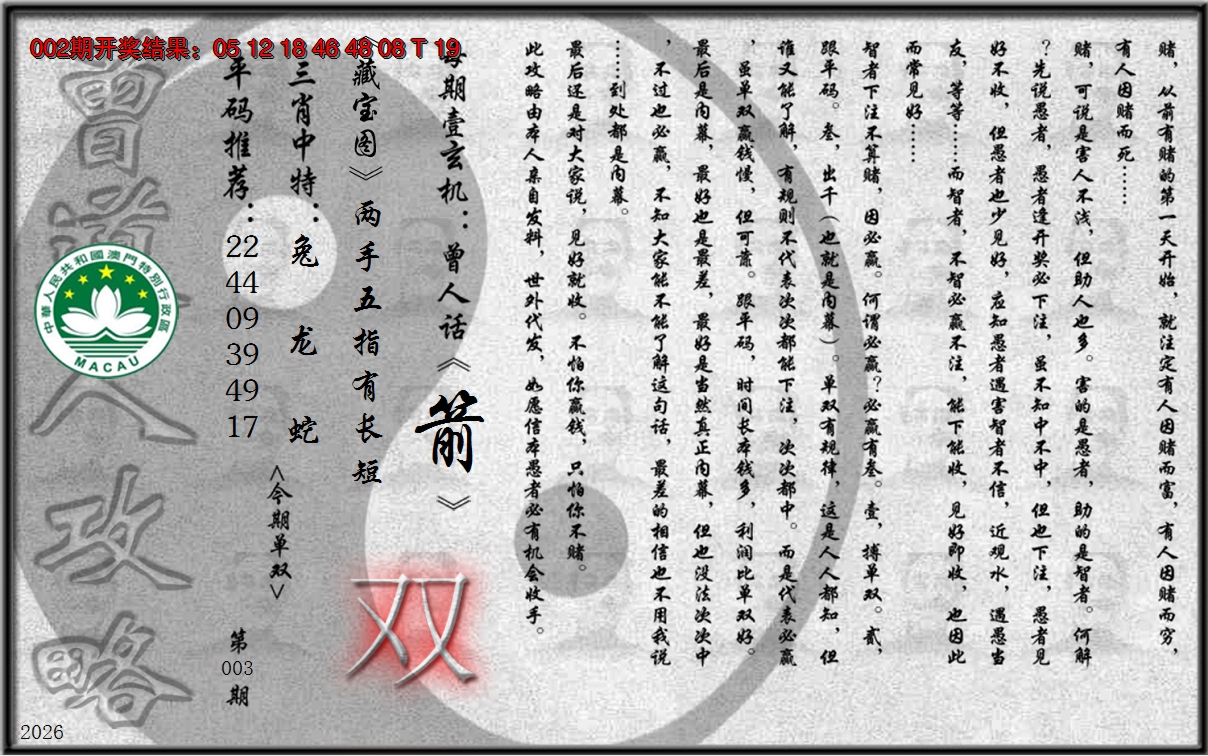 002期开奖结果：05 12 18 46 48 08 T 19
赌，从前有赌的第一天开始，就注定有人因赌而富，有人因赌而穷，
有人因赌而死……
赌，可说是害人不浅，但助人也多。害的是愚者，助的是智者。何解
？先说愚者，愚者逢开奖必下注，虽不知中不中，但也下注，愚者见
好不收，但愚者也少见好，应知愚者遇害智者不信，近观水，遇愚当
友，等等……而智者，不智必赢不注，能下能收，见好即收，也因此
而常见好……
智者下注不算赌，因必赢。何谓必赢？必赢有叁。壹，搏单双。贰，
跟平码。叁，出千（也就是内幕）。单双有规律，这是人人都知，但
谁又能了解，有规则不代表次次都能下注，次次都中。而是代表必赢
，虽单双赢钱慢，但可靠。跟平码，时间长本钱多，利润比单双好。
最后是内幕，最好也是最差，最好是当然真正内幕，但也没法次次中
，不过也必赢，不知大家能不能了解这句话，最差的相信也不用我说
……到处都是内幕。
最后还是对大家说，见好就收。不怕你赢钱，只怕你不赌。
此攻略由本人亲自发料，世外代发，如愿信本愚者必有机会收手。
每期壹玄机：曾人话《箭》
《藏宝图》两手五指有长短
双
三肖中特：兔 龙 蛇
<今期单双>
平码推荐：22 44 09 39 49 17
第003期
曾道人攻略
中華人民共和國澳門特別行政區
MACAU
2026